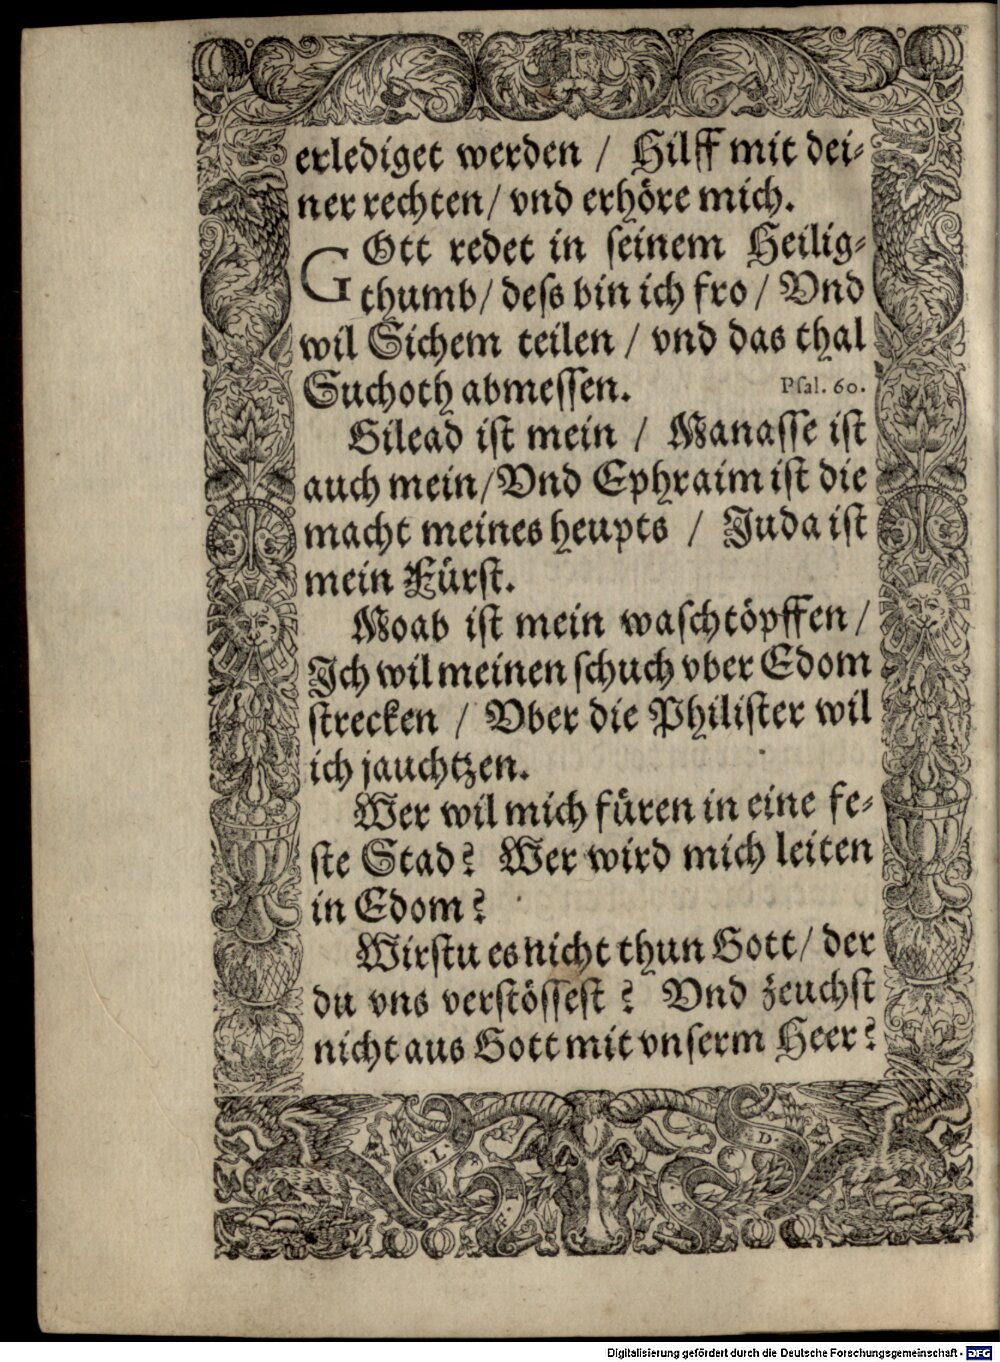 erlediget werden / Hilff mit dei-
ner rechten / vnd erhöre mich.
GOtt redet in seinem Heilig-
thumb / dess bin ich fro / Vnd
wil Sichem teilen / vnd das thal
Suchoth abmessen. Psal. 60.
Gilead ist mein / Manasse ist
auch mein / Vnd Ephraim ist die
macht meines heupts / Juda ist
mein Fürst.
Moab ist mein waschtöpffen /
Ich wil meinen schuch vber Edom
strecken / Vber die Philister wil
ich jauchtzen.
Wer wil mich füren in eine fe-
ste Stad? Wer wird mich leiten
in Edom?
Wirstu es nicht thun Gott / der
du vns verstössest? Vnd zeuchst
nicht aus Gott mit vnserm Heer?
D.
Digitalisierung gefördert durch die Deutsche Forschungsgemeinschaft - DFG